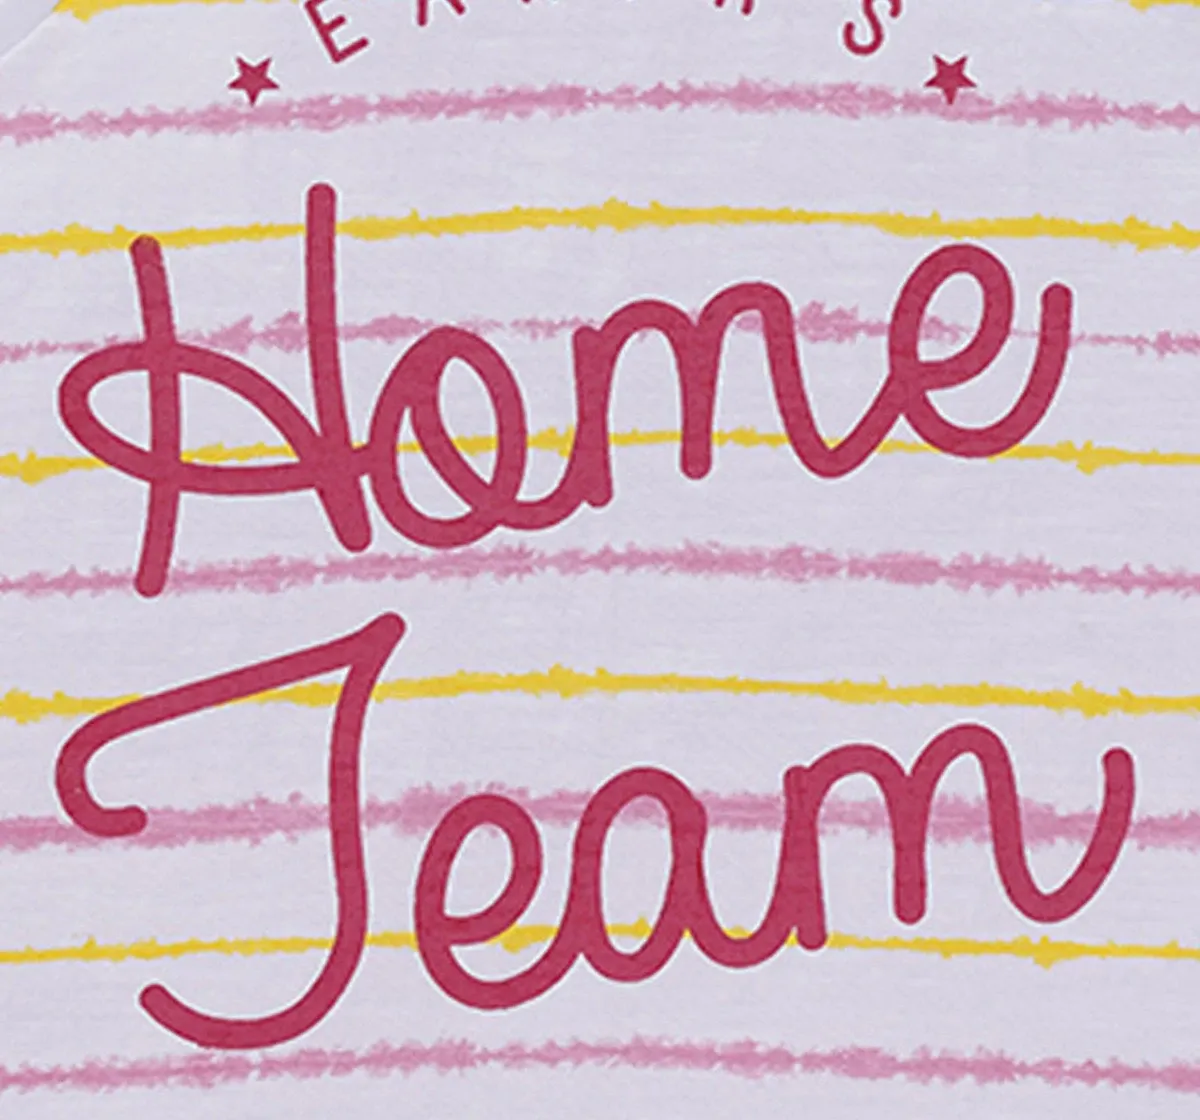 Home
Team